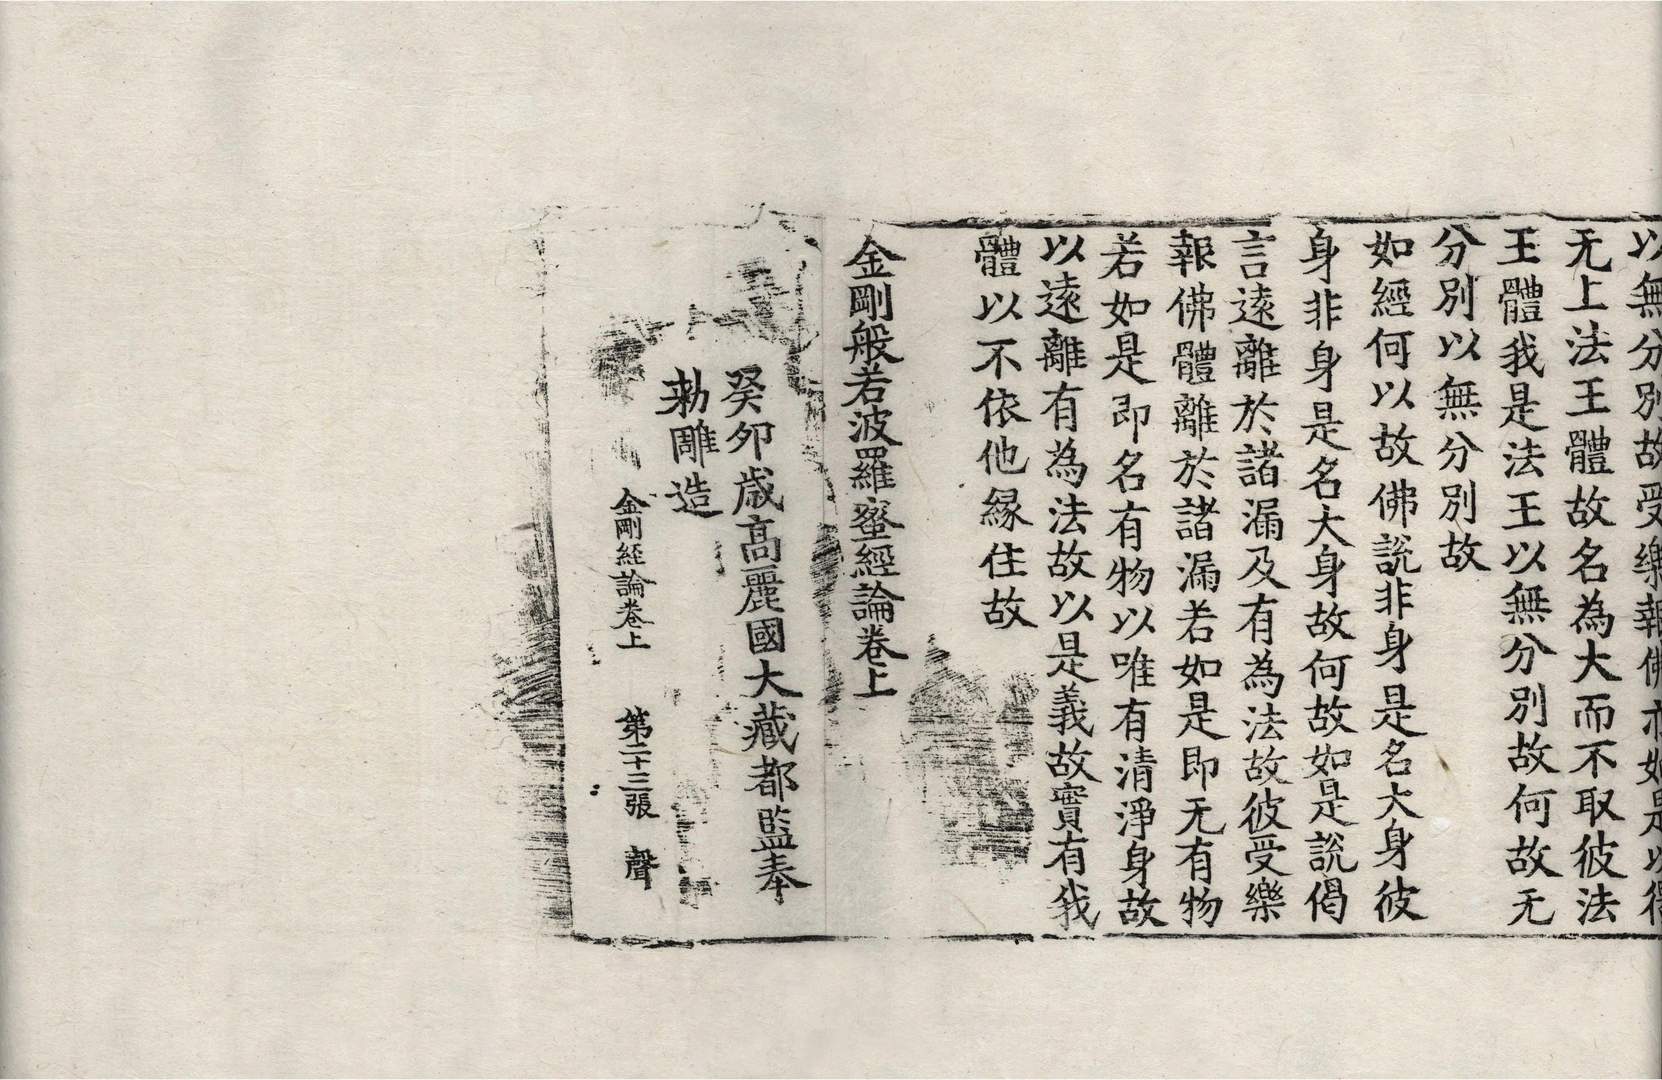 以無分別故受樂報佛亦如是以得
无上法王體故名為大而不取彼法
王體我是法王以無分別故何故无
分別以無分別故
如經何以故佛說非身是名大身彼
身非身是名大身故何故如是說偈
言遠離於諸漏及有為法故彼受樂
報佛體離於諸漏若如是即无有物
若如是即名有物以唯有清淨身故
以遠離有為法故以是義故實有我
體以不依他緣住故
金剛般若波羅蜜經論卷上
癸卯歲高麗國大藏都監奉
勅雕造
金剛經論卷上 第二十三張 聲